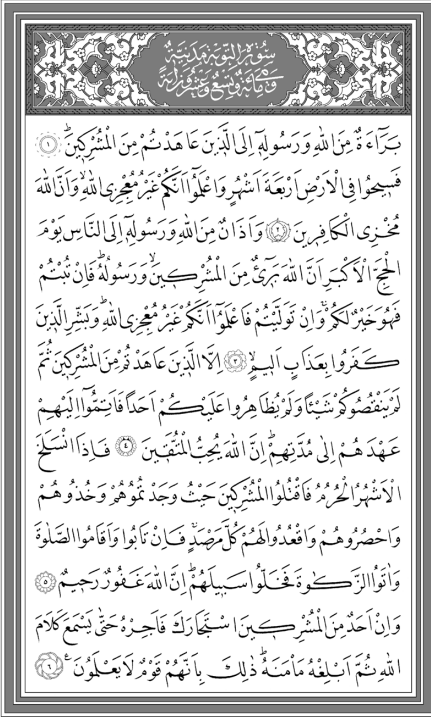 سُورَةُ التَّوْبَةِ مَدَنِيَّةٌ
وَهِيَ مِائَةٌ وَتِسْعٌ وَعِشْرُونَ اٰيَةً
بَرَٓاءَةٌ مِنَ اللّٰهِ وَرَسُولِهٖٓ اِلَى الَّذٖينَ عَاهَدْتُمْ مِنَ الْمُشْرِكٖينَۜ ﴿١﴾
فَسٖيحُوا فِي الْاَرْضِ اَرْبَعَةَ اَشْهُرٍ وَاعْلَمُٓوا اَنَّكُمْ غَيْرُ مُعْجِزِي اللّٰهِۙ وَاَنَّ اللّٰهَ
مُخْزِي الْكَافِرٖينَ ﴿٢﴾ وَاَذَانٌ مِنَ اللّٰهِ وَرَسُولِهٖٓ اِلَى النَّاسِ يَوْمَ
الْحَجِّ الْاَكْبَرِ اَنَّ اللّٰهَ بَرٖٓيءٌ مِنَ الْمُشْرِكٖينَۙ وَرَسُولُهُۜ فَاِنْ تُبْتُمْ
فَهُوَ خَيْرٌ لَكُمْۚ وَاِنْ تَوَلَّيْتُمْ فَاعْلَمُٓوا اَنَّكُمْ غَيْرُ مُعْجِزِي اللّٰهِۜ وَبَشِّرِ الَّذٖينَ
كَفَرُوا بِعَذَابٍ اَلٖيمٍۙ ﴿٣﴾ اِلَّا الَّذٖينَ عَاهَدْتُمْ مِنَ الْمُشْرِكٖينَ ثُمَّ
لَمْ يَنْقُصُوكُمْ شَيْـًٔا وَلَمْ يُظَاهِرُوا عَلَيْكُمْ اَحَدًا فَاَتِمُّٓوا اِلَيْهِمْ
عَهْدَهُمْ اِلٰى مُدَّتِهِمْۜ اِنَّ اللّٰهَ يُحِبُّ الْمُتَّقٖينَ ﴿٤﴾ فَاِذَا انْسَلَخَ
الْاَشْهُرُ الْحُرُمُ فَاقْتُلُوا الْمُشْرِكٖينَ حَيْثُ وَجَدْتُمُوهُمْ وَخُذُوهُمْ
وَاحْصُرُوهُمْ وَاقْعُدُوا لَهُمْ كُلَّ مَرْصَدٍۚ فَاِنْ تَابُوا وَاَقَامُوا الصَّلٰوةَ
وَاٰتَوُا الزَّكٰوةَ فَخَلُّوا سَبٖيلَهُمْۜ اِنَّ اللّٰهَ غَفُورٌ رَحٖيمٌ ﴿٥﴾
وَاِنْ اَحَدٌ مِنَ الْمُشْرِكٖينَ اسْتَجَارَكَ فَاَجِرْهُ حَتّٰى يَسْمَعَ كَلَامَ
اللّٰهِ ثُمَّ اَبْلِغْهُ مَأْمَنَهُۜ ذٰلِكَ بِاَنَّهُمْ قَوْمٌ لَا يَعْلَمُونَ ࣖ ﴿٦﴾